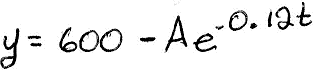 y = 600 - Ae^{-0.12t}